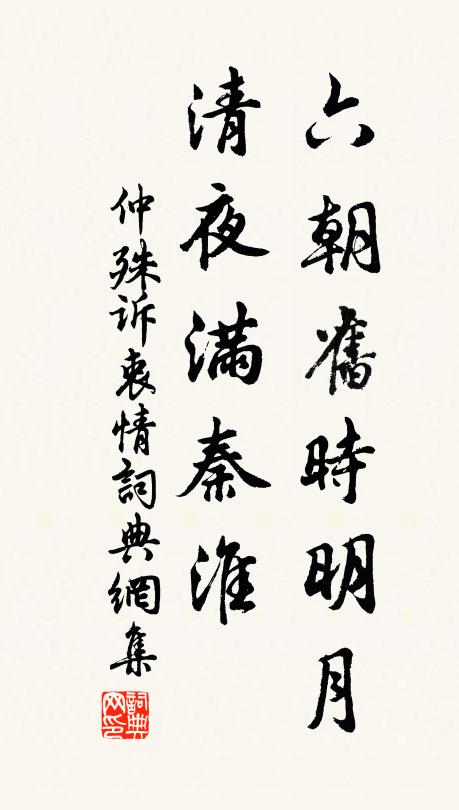 六朝舊時明月
清夜滿秦淮
仲殊訴衷情詞典網集
詞典網印